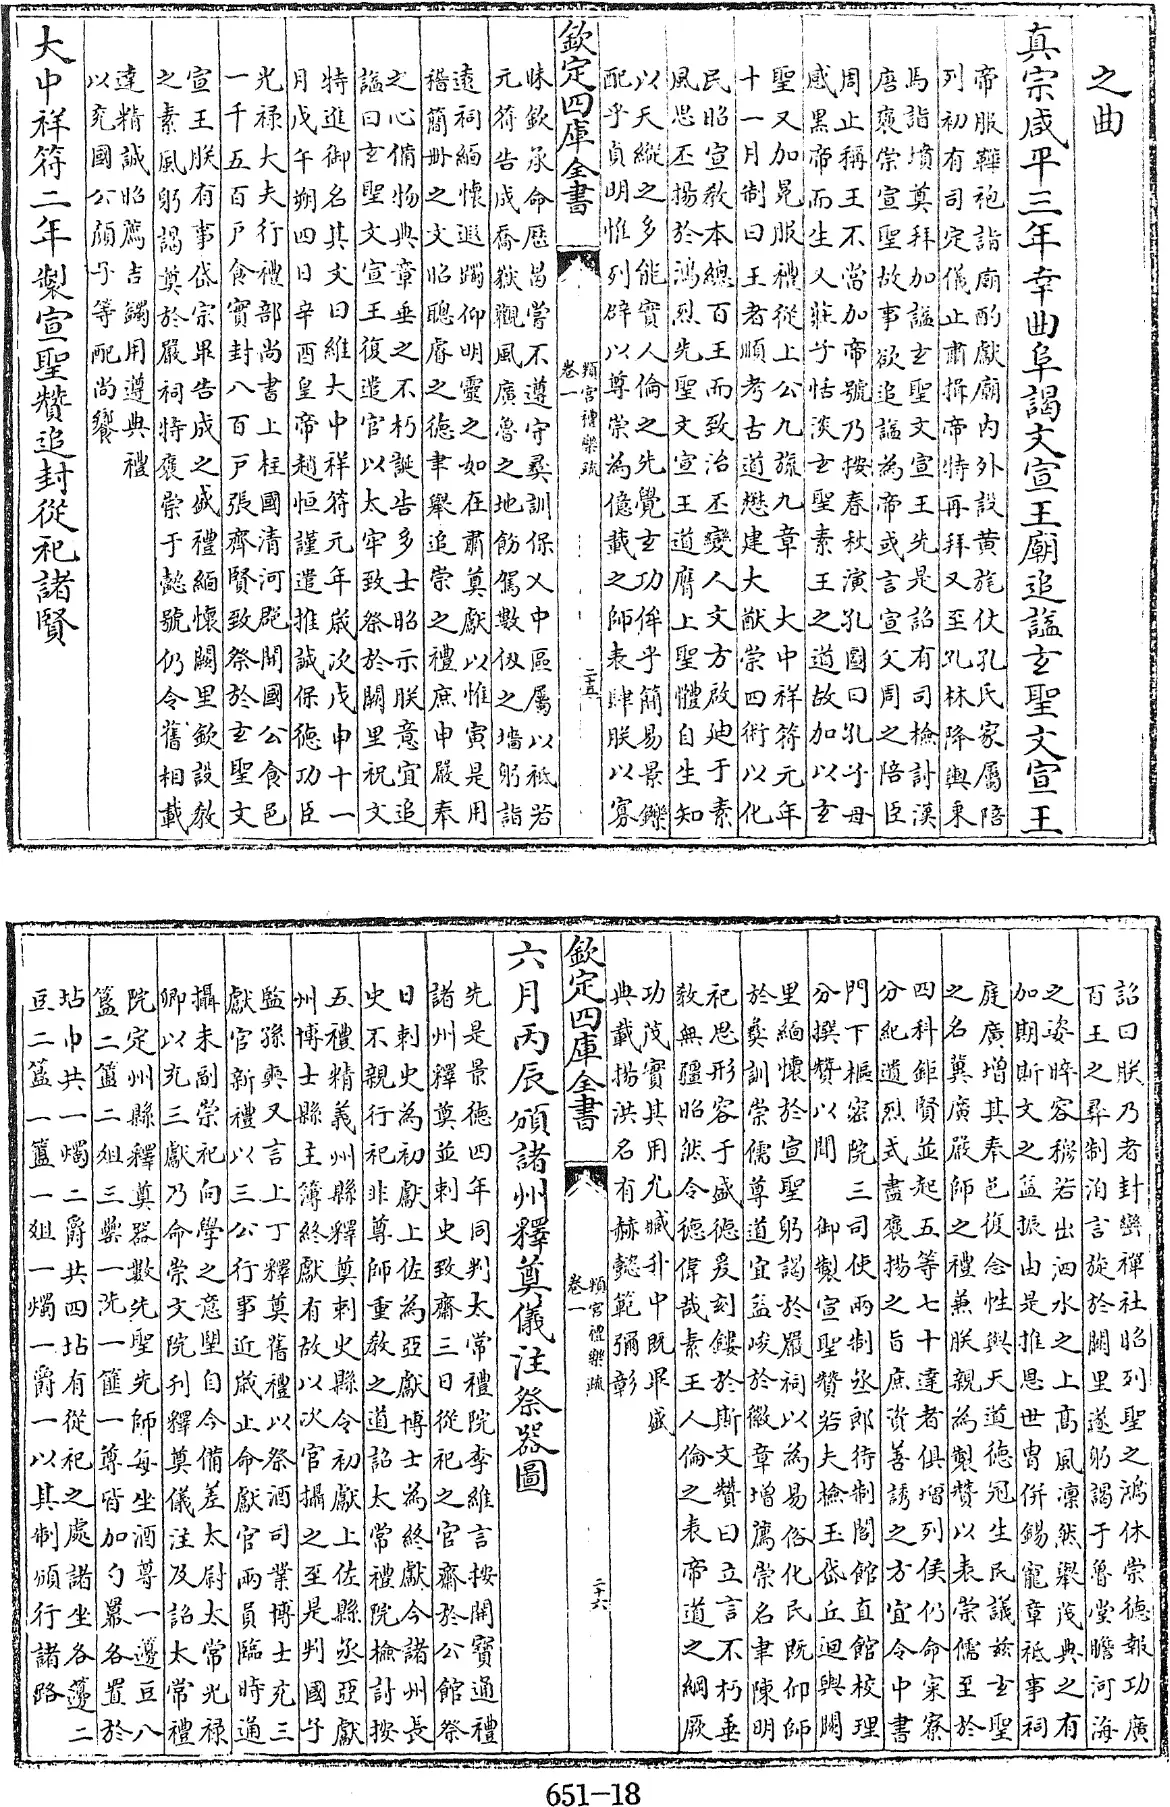 之曲
真宗咸平三年幸曲阜謁文宣王廟追謚玄聖文宣王
帝服鞾袍詣廟酌獻廟内外設黄麾仗孔氏家屬陪
列初有司定儀止肅揖帝特再拜又至孔林降輿乗
馬詣墳奠拜加謚玄聖文宣王先是詔有司檢討漢
唐褒崇宣聖故事欲追謚為帝或言宣父周之陪臣
周止稱王不當加帝號乃按春秋演孔圖曰孔子母
感黑帝而生又莊子恬淡玄聖素王之道故加以玄
聖又加冕服禮從上公九旒九章　大中祥符元年
十一月制曰王者順考古道懋建大猷崇四術以化
民昭宣教本總百王而致治丕變人文方啟廸于素
風思丕揚於鴻烈先聖文宣王道膺上聖體自生知
以天縱之多能實人倫之先覺玄功侔乎簡易景鑠
配乎貞明惟列辟以尊崇為億載之師表肆朕以寡
欽定四庫全書
頖宫禮樂疏
卷一
二十五
昧欽承命厯曷嘗不遵守彞訓保乂中區屬以祗若
元符告成喬嶽觀風廣魯之地飭駕數仭之墻躬詣
遠祠緬懷遐躅仰明靈之如在肅奠獻以惟寅是用
稽簡冊之文昭聰睿之徳聿舉追崇之禮庶申嚴奉
之心備物典章垂之不朽誕告多士昭示朕意宜追
謚曰玄聖文宣王復遣官以太牢致祭於闕里祝文
特進御名其文曰維大中祥符元年歲次戊申十一
月戊午朔四日辛酉皇帝趙恒謹遣推誠保徳功臣
光禄大夫行禮部尚書上柱國清河郡開國公食邑
一千五百户食實封八百户張齊賢致祭於玄聖文
宣王朕有事岱宗畢告成之盛禮緬懷闕里欽設教
之素風躬謁奠於嚴祠特褒崇于懿號仍令舊相載
達精誠昭薦吉蠲用遵典禮
以兖國公顔子等配尚饗
大中祥符二年製宣聖贊追封從祀諸賢
詔曰朕乃者封巒禪社昭列聖之鴻休崇德報功廣
百王之彞制洎言旋於闕里遂躬謁于魯堂瞻河海
之姿睟容穆若出泗水之上髙風凛然舉茂典之有
加期斯文之益振由是推恩世胄併錫寵章祗事祠
庭廣增其奉邑復念性與天道德冠生民議兹玄聖
之名冀廣嚴師之禮兼朕親為製贊以表崇儒至於
四科鉅賢並起五等七十達者俱増列侯仍命寀寮
分紀遺烈式盡褒揚之旨庶資善誘之方宜令中書
門下樞宻院三司使兩制丞郎待制閣館直館校理
分撰贊以聞　御製宣聖贊若夫檢玉岱丘迴輿闕
里緬懷於宣聖躬謁於嚴祠以為易俗化民既仰師
於彞訓崇儒尊道宜益峻於徽章增薦崇名聿陳明
祀思形容于盛德爰刻鏤於斯文贊曰立言不朽垂
教無疆昭然令德偉哉素王人倫之表帝道之綱厥
功茂實其用允臧升中既畢盛
典載揚洪名有赫懿範彌彰
欽定四庫全書
頖宫禮樂疏
卷一
二十六
六月丙辰頒諸州釋奠儀注祭器圖
先是景德四年同判太常禮院李維言按開寳通禮
諸州釋奠並刺史致齋三日從祀之官齋於公館祭
日刺史為初獻上佐為亞獻博士為終獻今諸州長
史不親行祀非尊師重教之道詔太常禮院檢討按
五禮精義州縣釋奠刺史縣令初獻上佐縣丞亞獻
州博士縣主簿終獻有故以次官攝之至是判國子
監孫奭又言上丁釋奠舊禮以祭酒司業博士充三
獻官新禮以三公行事近歲止命獻官兩員臨時通
攝未副崇祀向學之意望自今備差太尉太常光禄
卿以充三獻乃命崇文院刋釋奠儀注及詔太常禮
院定州縣釋奠器數先聖先師每坐酒尊一籩豆八
簋二簠二俎三罍一洗一篚一尊皆加勺羃各置於
坫巾共一燭二爵共四坫有從祀之處諸坐各籩二
豆二簋一簠一俎一燭一爵一以其制頒行諸路
651-18